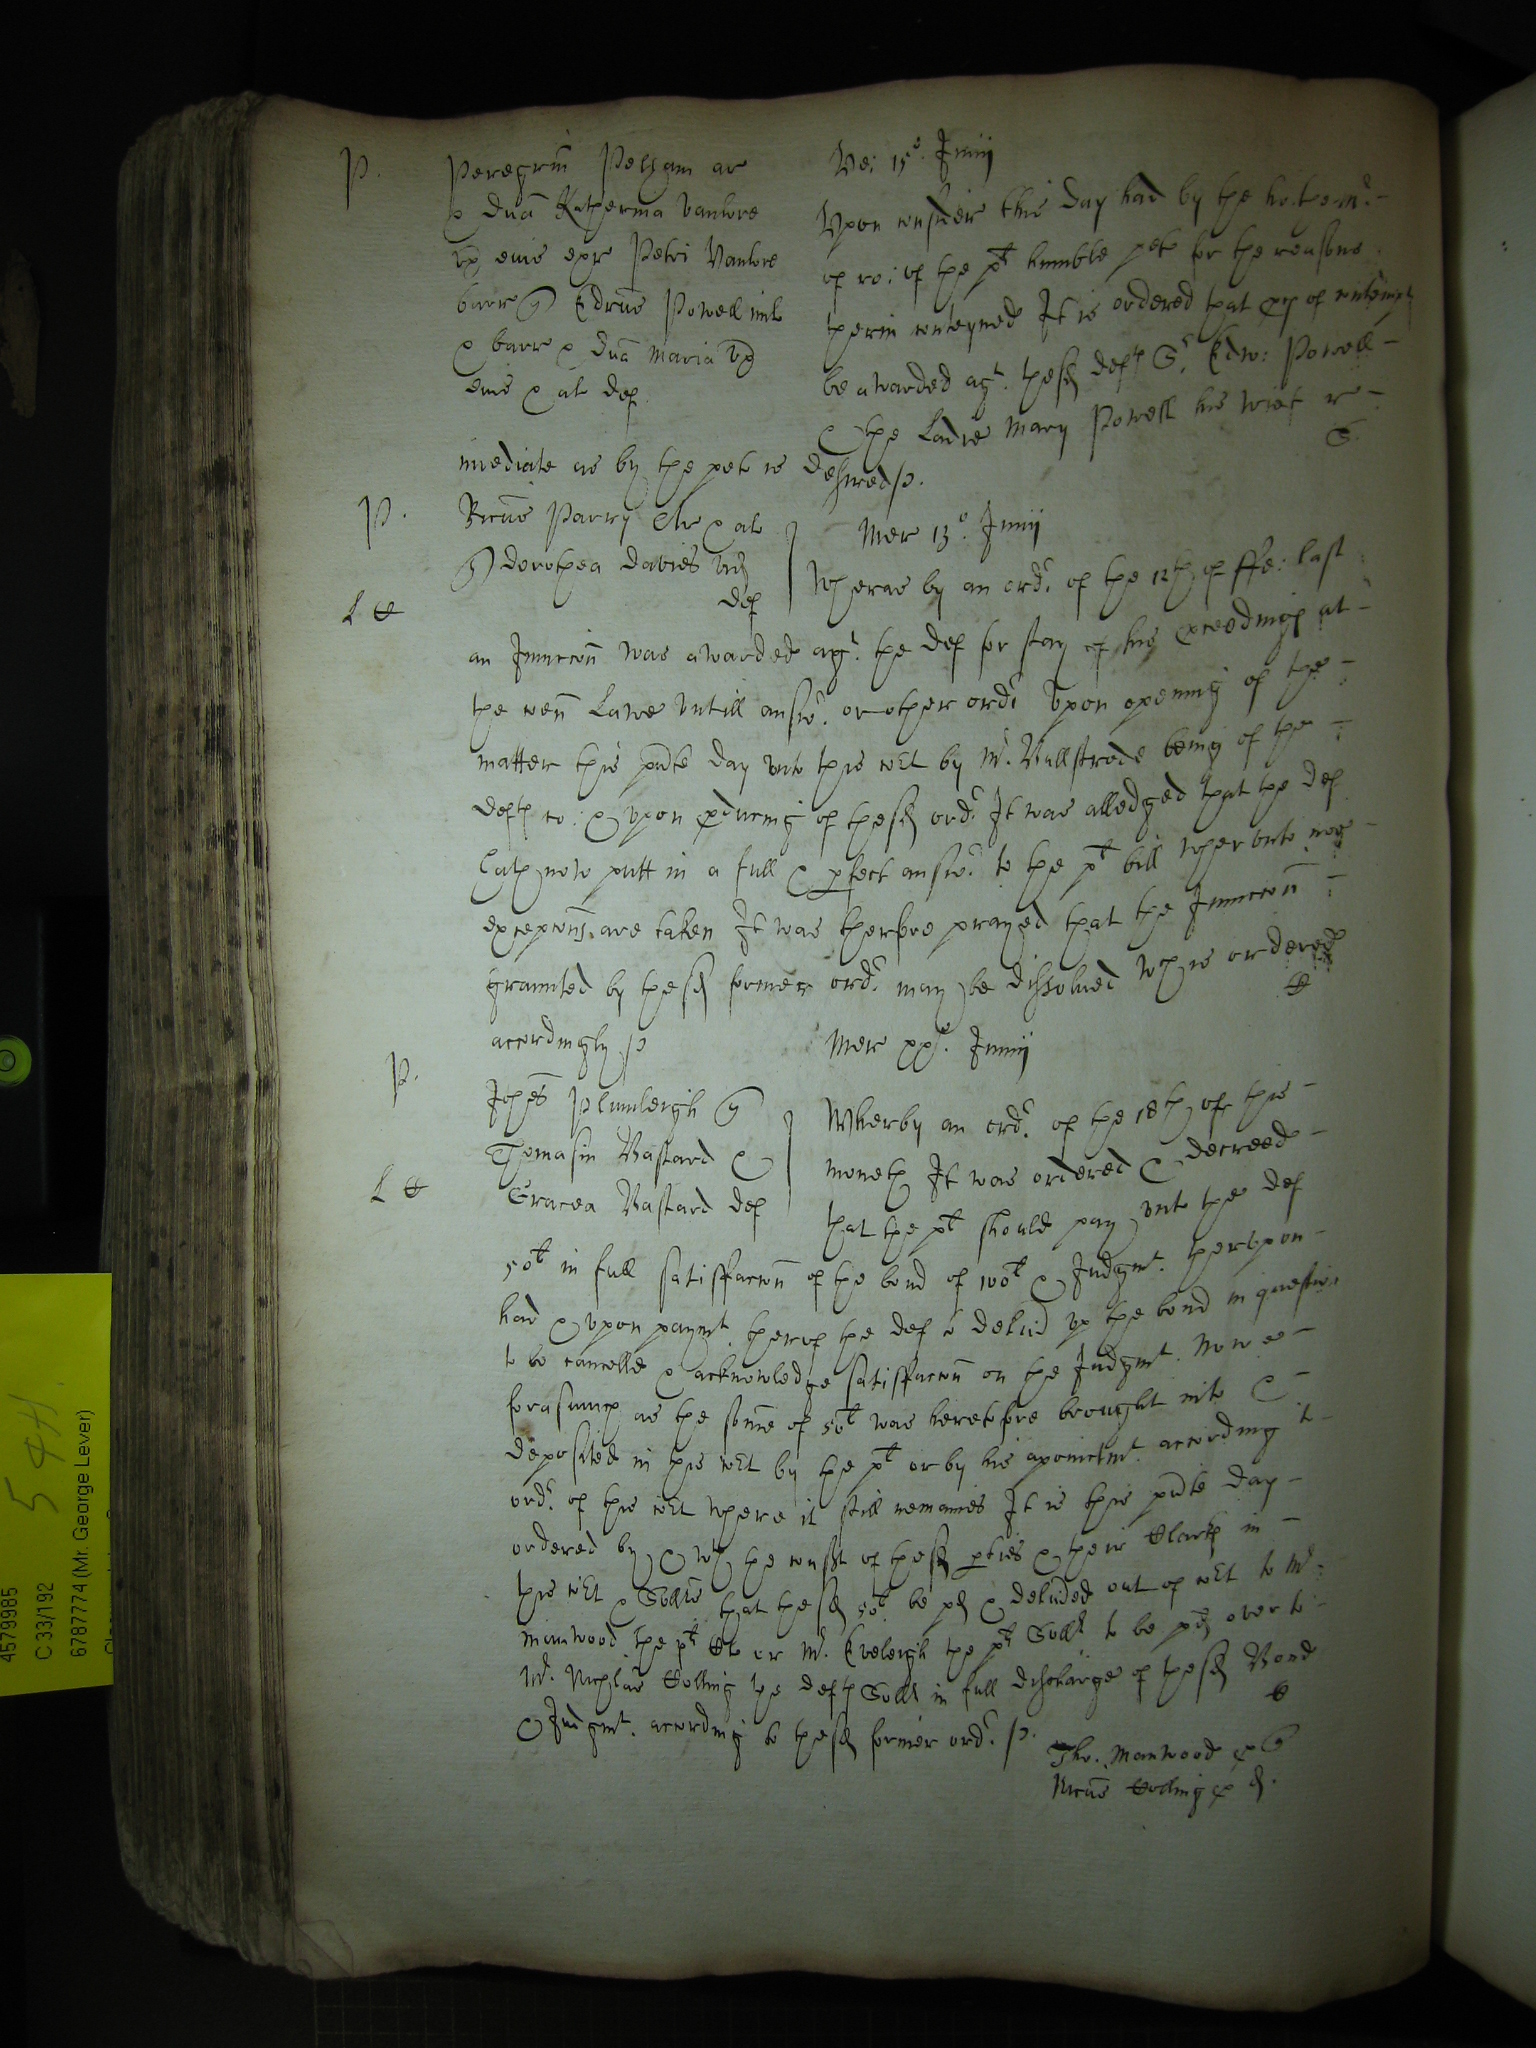 P. Peregrin Pelham ar
& dna Katherina Vanlore
ux eius exr Petri Vanlore
barr qu Edrus Powell mil
& barr & dna Maria ux
eius & al def
Ve: 15º Junij
Upon consider this day had by the ho: the Mr
of ro: of the plt humble peto for the reasons
therin conteyned It is ordered that of contempt
be awarded agt. the sd defts Sr. Edw: Powell
& the Ladie Mary Powell his wief
imediate as by the peto is desired /p.
P. Ricus Parry Cler & al
qu Dorothea Davies vid
def
L
Mer 13º Junij
Wheras by an ordr of the 12th of ffe: last
an Iniunccon was awarded agt. the def for stay of his proceedings at
the comn Lawe untill answr. or other ordr Upon opening of the
matter this pnte day unto this cort by Mr. Bulstrode being of the
defts co: & upon producing of the sd ordr It was alledged that the def
hath now putt in a full & perfect answr. to the plt bill wherunto noe
excepcons are taken It was therfore prayed that the Iniunccon
graunted by the sd former ordr. may be dissolved wch is ordered
accordingly /p
P. Johes Plumleigh qu
Thomasin Bastard &
Gracea Bastard def
L
Mer xxº. Junij
Wherby an ordr. of the 18th of this
moneth It was ordered & decreed
that the plt should pay unto the def
50l in full satisfaccon of the bond of 100l & Judgmt. therupon
had & upon paymt. therof the def to delivd up the bond in question
to be cancelld & acknowledge satisfaccon on the Judgmt. Nowe
forasmuch as the some of 50l was heretofore brought into &
deposited in this cort by the plt or by his apointmt. according to
ordr. of this cort where it still remaines It is this pnte day
ordered by & wth the consent of the sd pties & their Clarks in
this cort & Sollrs that the sd 50l. be pd & delivded out of cort to Mr
Manwood the plts or Mr. Eveleigh the plts Sollr to be pd over to
Mr. Nichlas Colling the defts Sollr in full discharge of the sd Bond
& Judgmt. according to the sd former ordr. /p.
Tho. Manwood p qu
Colling p d.
4579985
C 33/192
6787774 (Mr. George Lever)